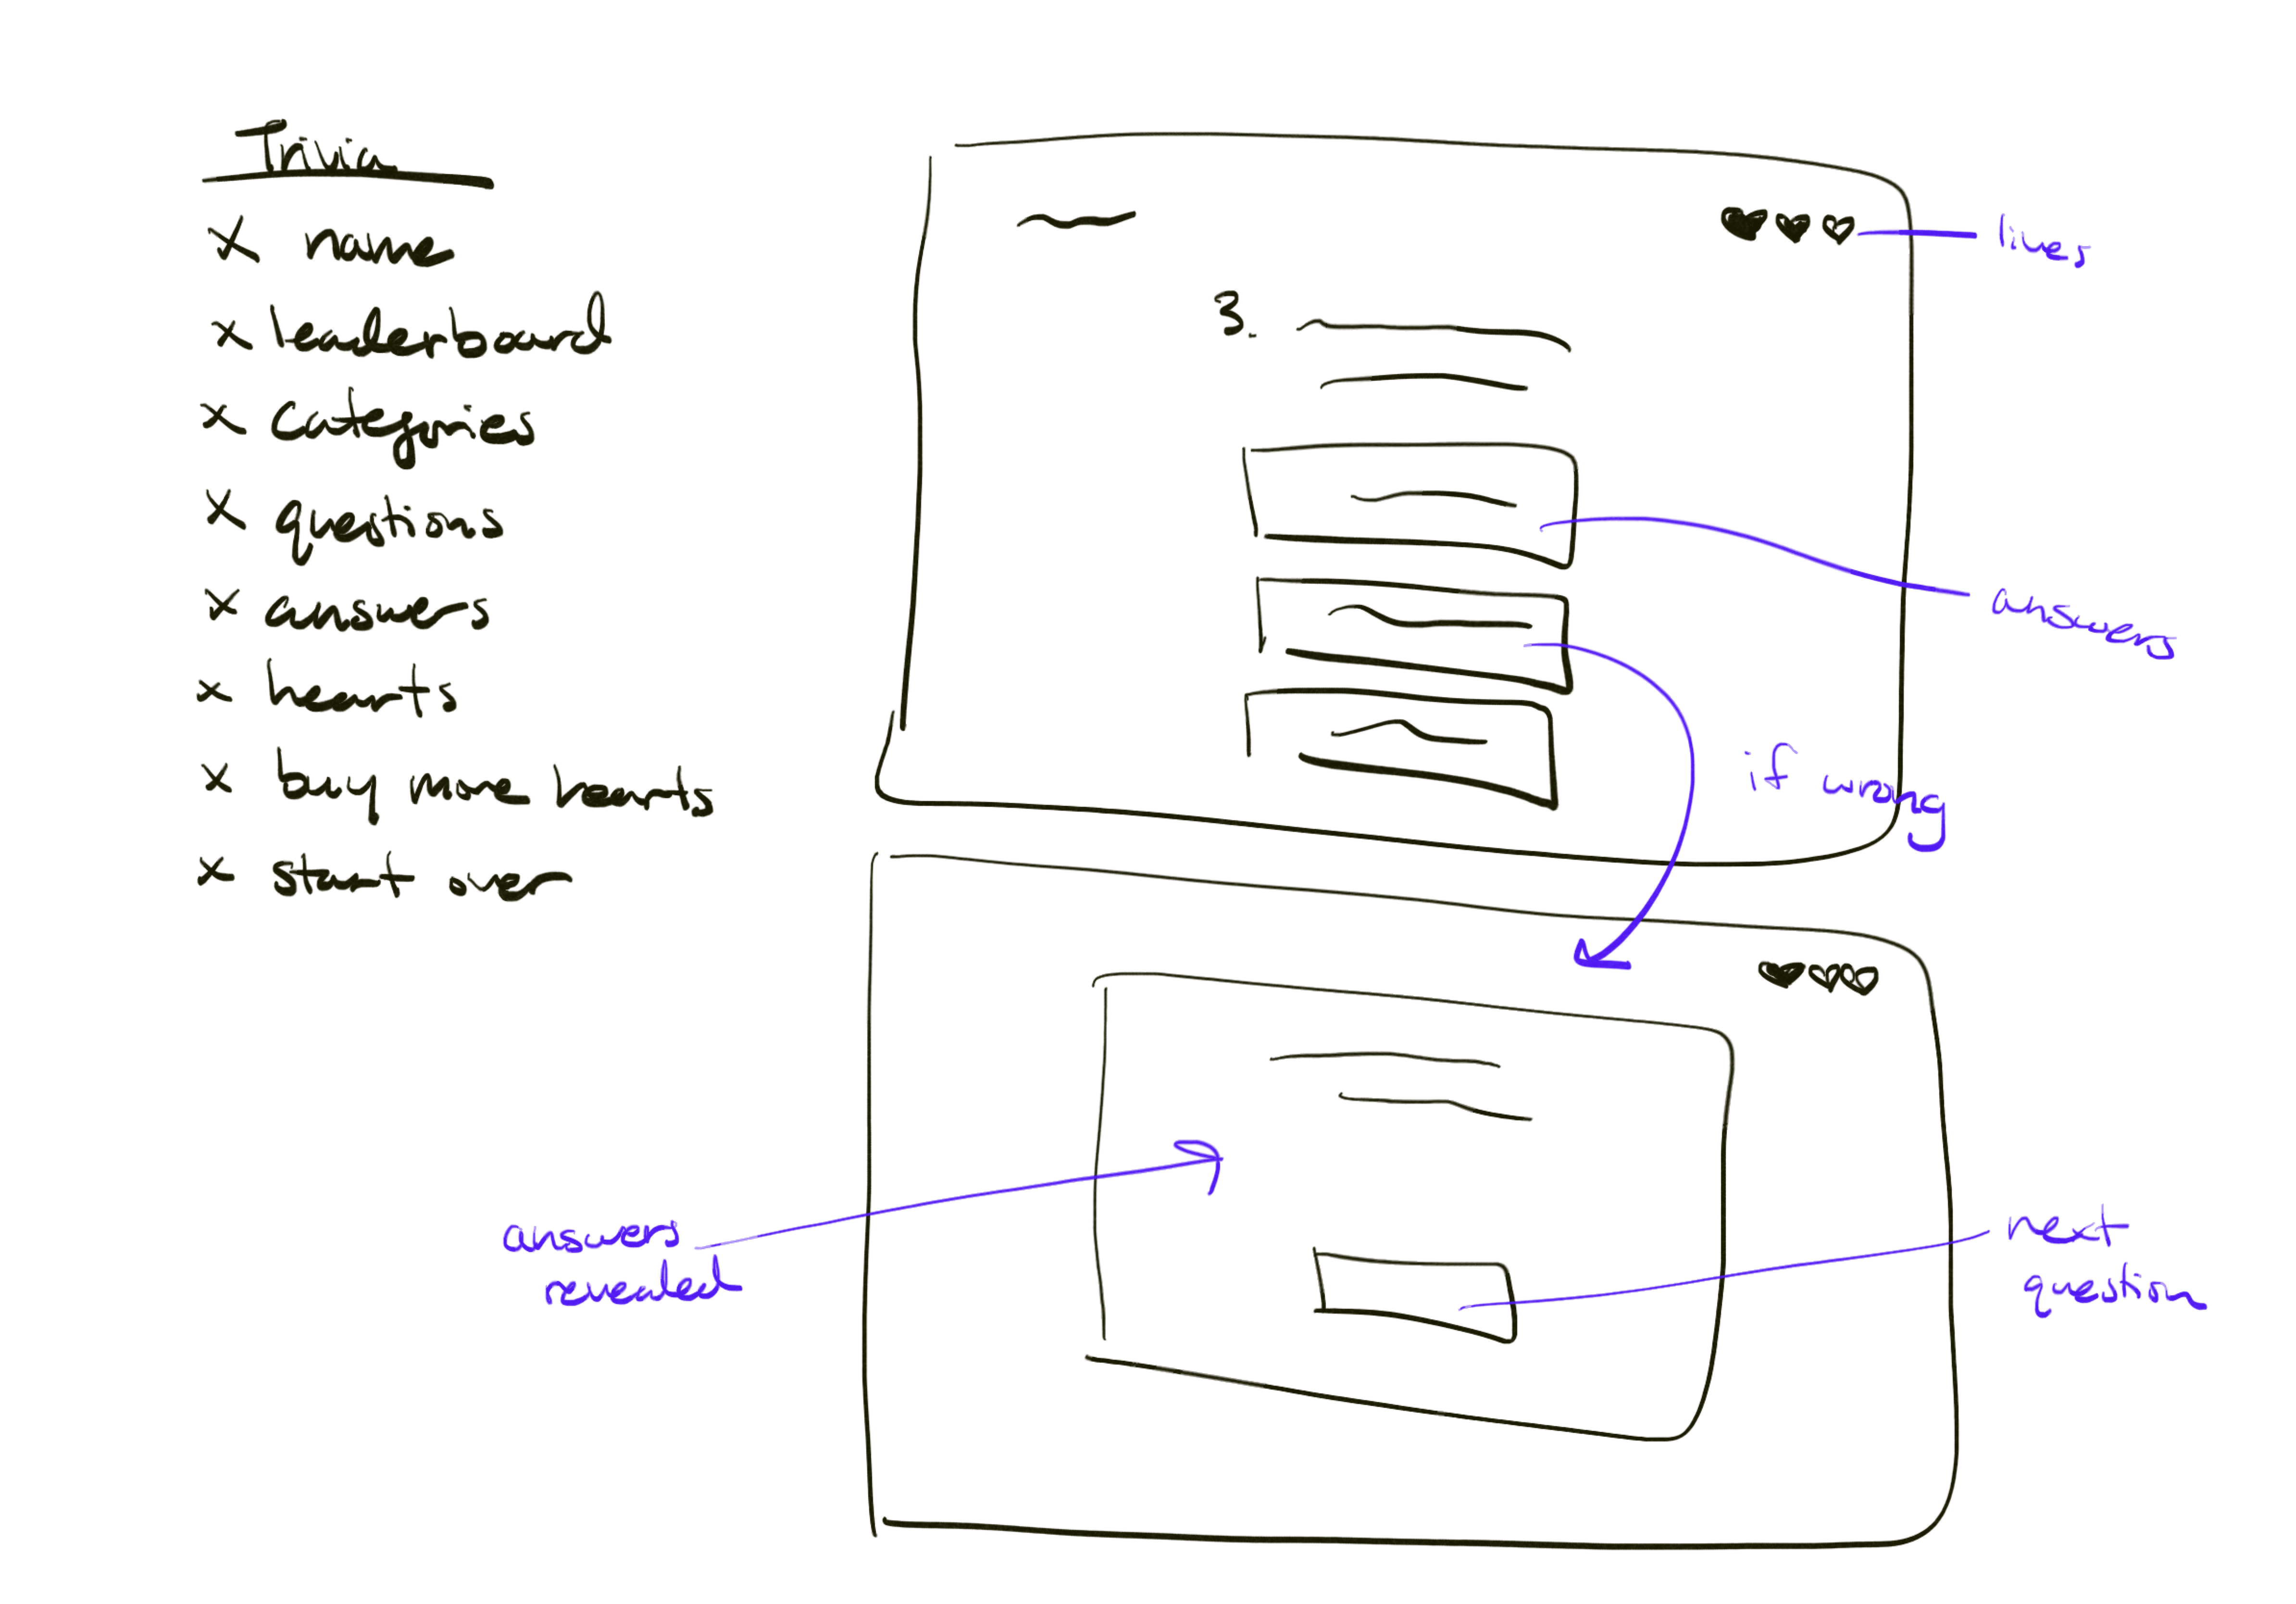 Trivia
x name
x leaderboard
x categories
x questions
x answers
x hearts
x buy more hearts
x start over
lives
3.
answers
if wrong
answers
revealed
next
question